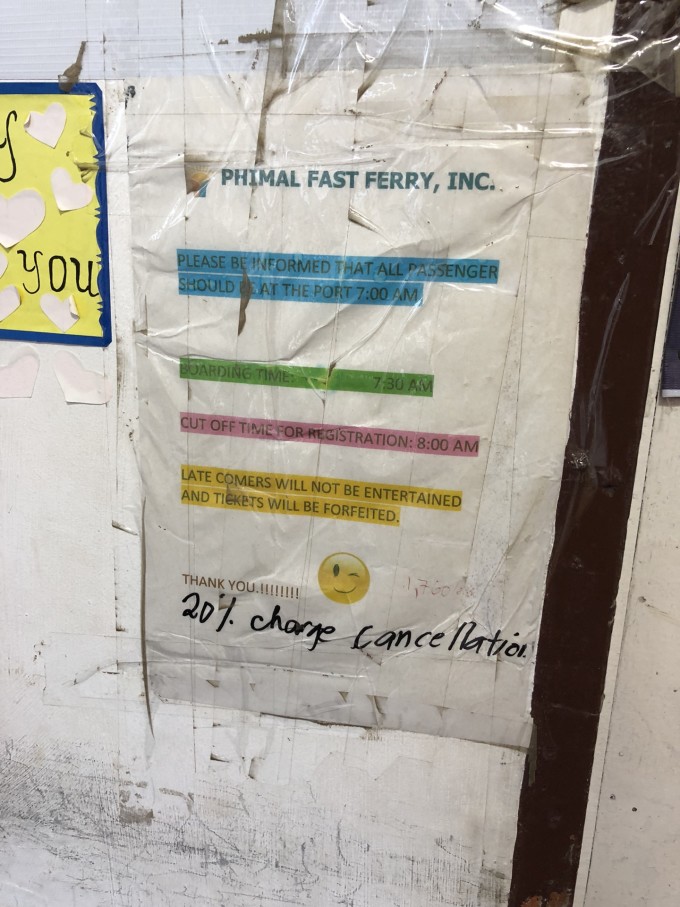 y
you
PHIMAL FAST FERRY, INC.
PLEASE BE INFORMED THAT ALL PASSENGER
SHOULD BE AT THE PORT 7:00 AM
BOARDING TIME: 7:30 AM
CUT OFF TIME FOR REGISTRATION: 8:00 AM
LATE COMERS WILL NOT BE ENTERTAINED
AND TICKETS WILL BE FORFEITED.
THANK YOU.!!!!!!!!
20% charge Cancellation